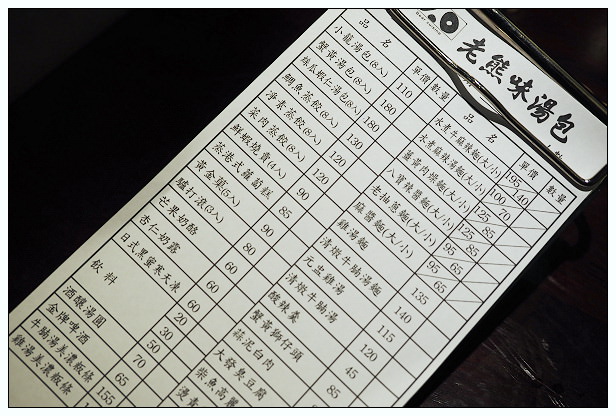 老熊味湯包
品名 單價 數量
小籠湯包(8入) 110
蟹黃湯包(8入) 180
絲瓜蝦仁湯包(8入) 180
鯛魚蒸餃(8入) 130
淨素蒸餃(8入) 120
菜肉蒸餃(8入) 120
鮮蝦燒賣(4入) 120
蒸港式蘿蔔糕 90
黃金菓(5入) 85
驢打滾(3入) 90
芒果奶酪 80
杏仁奶露 60
日式黑蜜寒天凍 60
飲料
酒釀湯圓
金牌啤酒
牛腩湯美濃粄條
雞湯美濃粄條
60
20
30
50
70
65
155
品名 單價 數量
水煮牛麻辣麵(大/小) 195 140
水煮麻辣湯麵(大/小) 100 70
蟹黃肉燥麵(大/小) 125 85
八寶辣醬麵(大/小) 125 85
老油蔥麵(大/小) 95 65
麻醬麵(大/小) 95 65
雞湯麵
清燉牛腩湯麵 135
元盅雞湯 140
清燉牛腩湯 115
酸辣羹 120
蟹黃獅仔頭 45
蒜泥白肉 85
大發臭豆腐
柴魚高麗
燙青